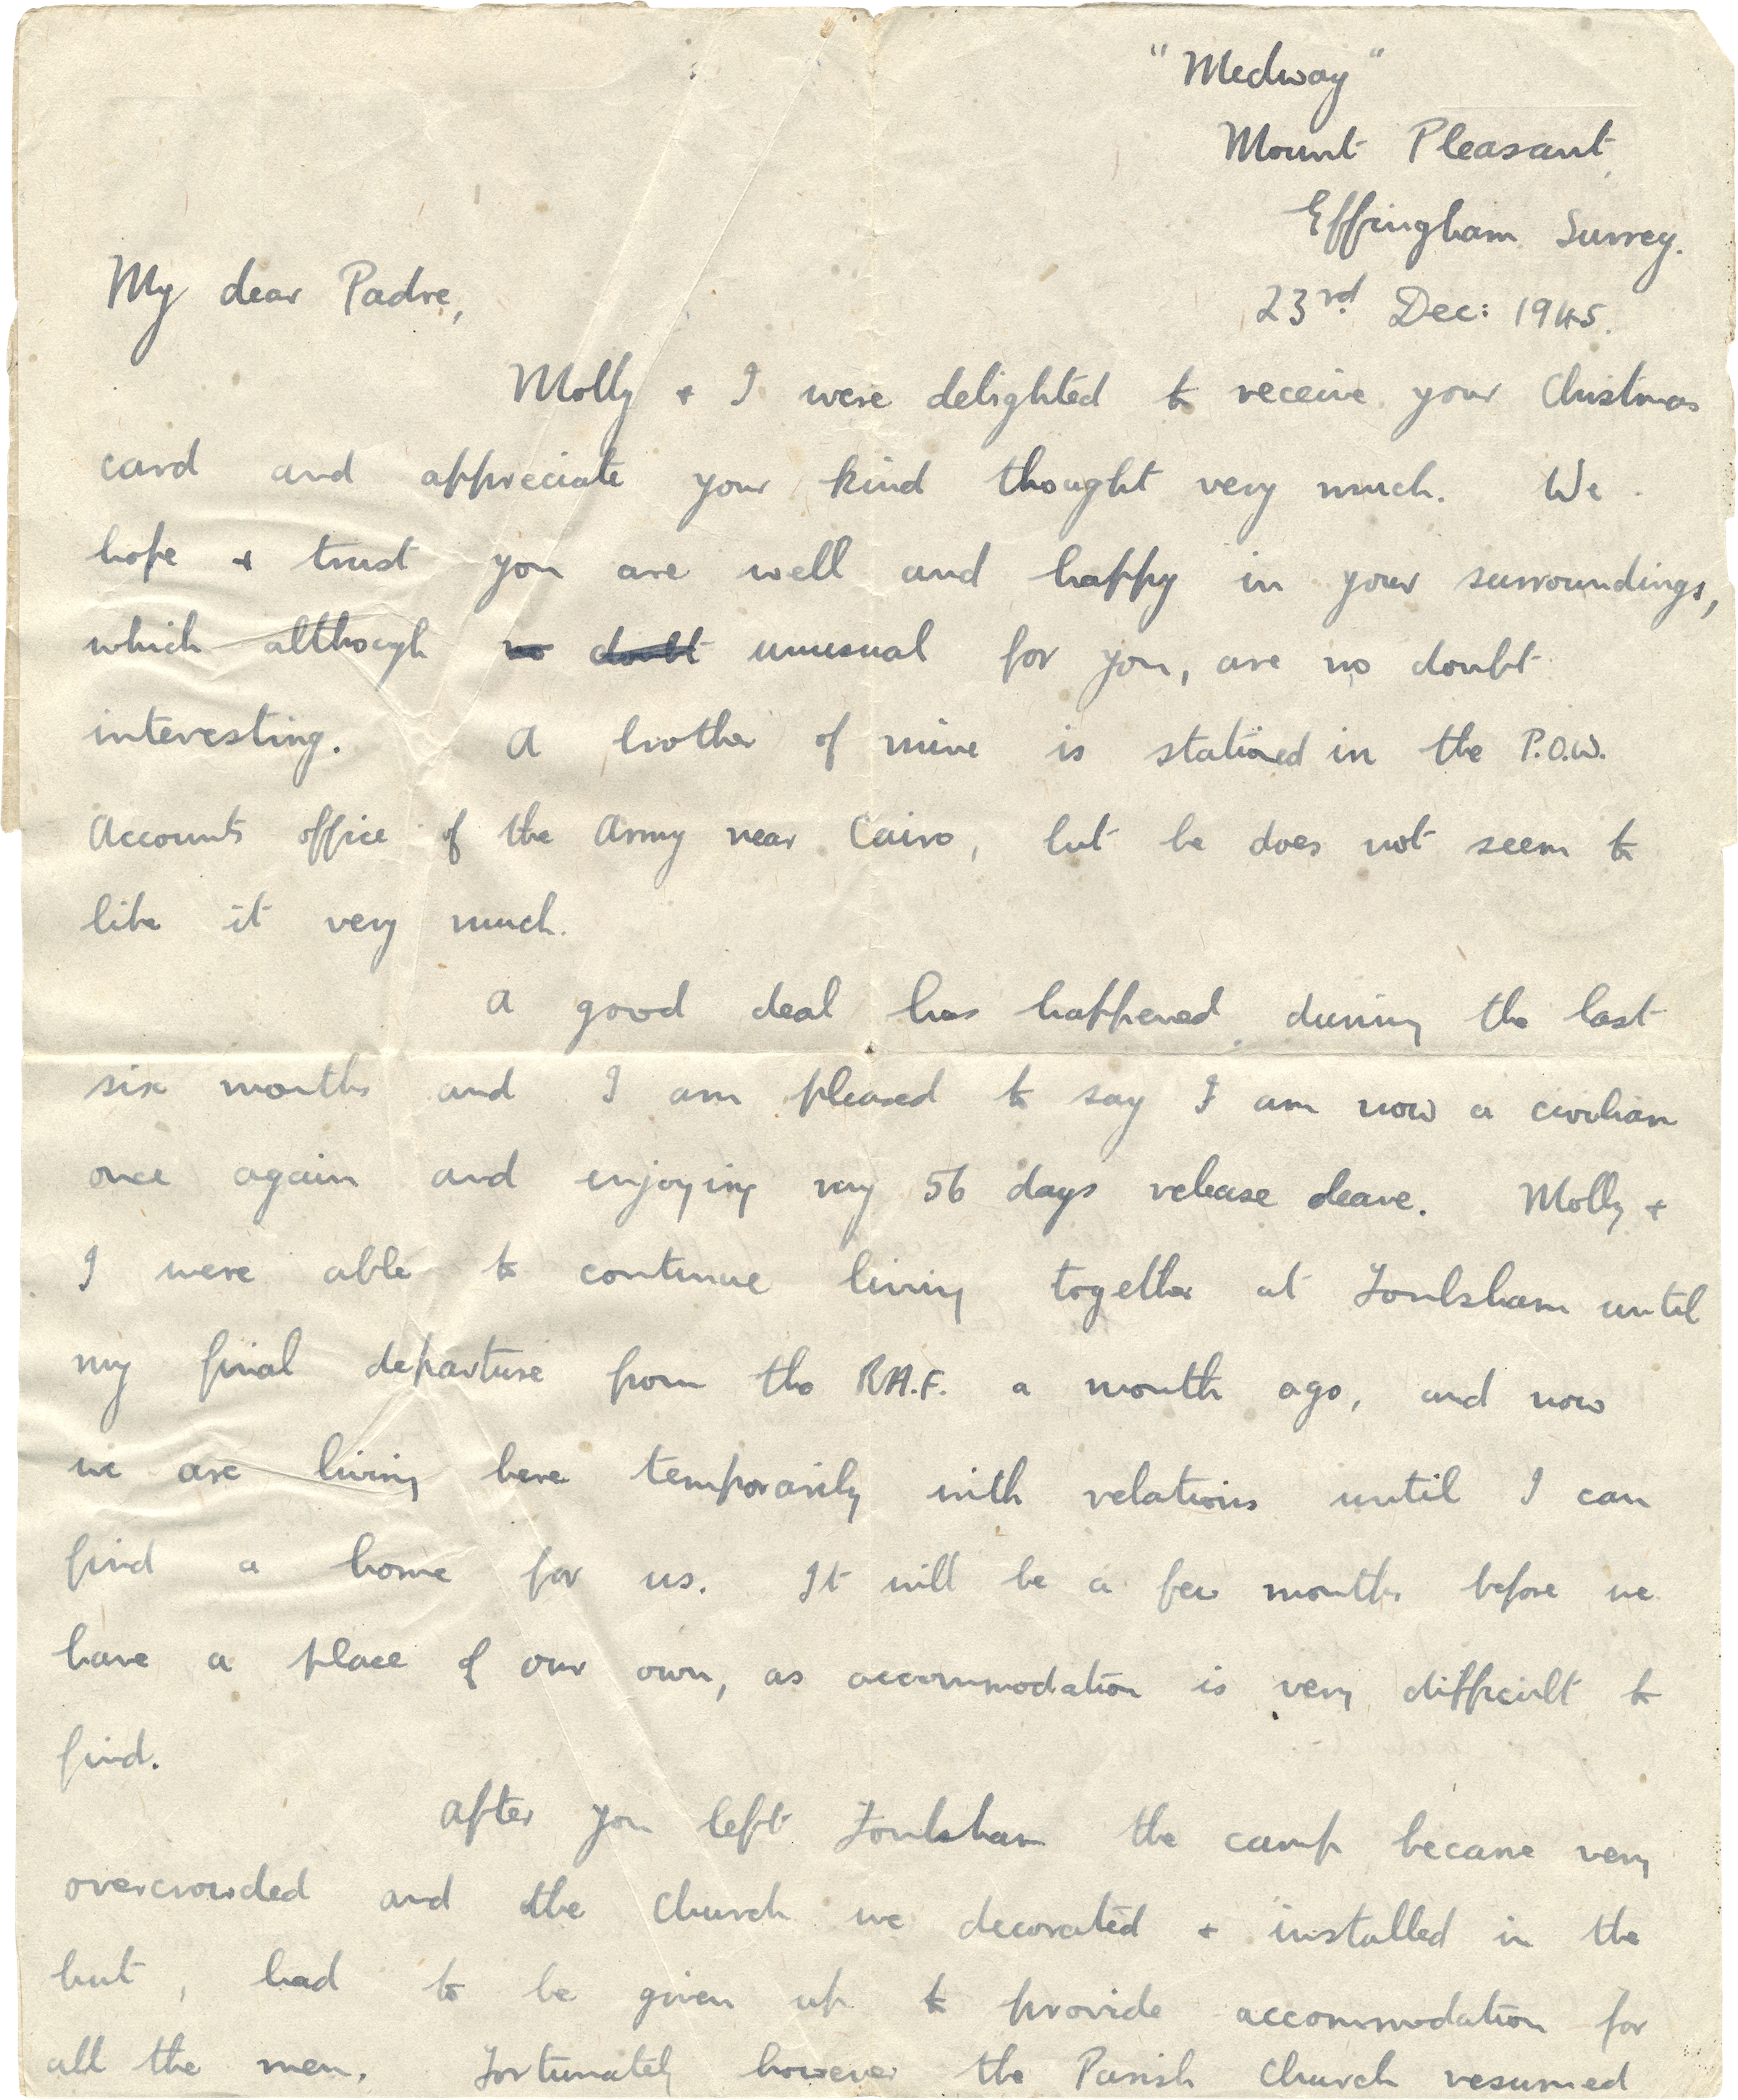 "Medway"
Mount Pleasant
Effingham Surrey.
23rd. Dec: 1945.
My dear Padre,
Molly + I were delighted to receive your Christmas
card and appreciate your kind thought very much. We
hope + trust you are well and happy in your surroundings,
which although no doubt unusual for you, are no doubt
interesting. A brother of mine is stationed in the P.O.W.
Accounts office of the Army near Cairo, but he does not seem to
like it very much.
A good deal has happened during the last
six months and I am pleased to say I am now a civilian
once again and enjoying my 56 days release leave. Molly +
I were able to continue living together at Foulsham until
my final departure from the R.A.F. a month ago, and now
we are living here temporarily with relations until I can
find a home for us. It will be a few months before we
have a place of our own, as accommodation is very difficult to
find.
After you left Foulsham the camp became very
overcrowded and the Church we decorated + installed in the
hut, had to be given up to provide accommodation for
all the men. Fortunately however the Parish Church resumed